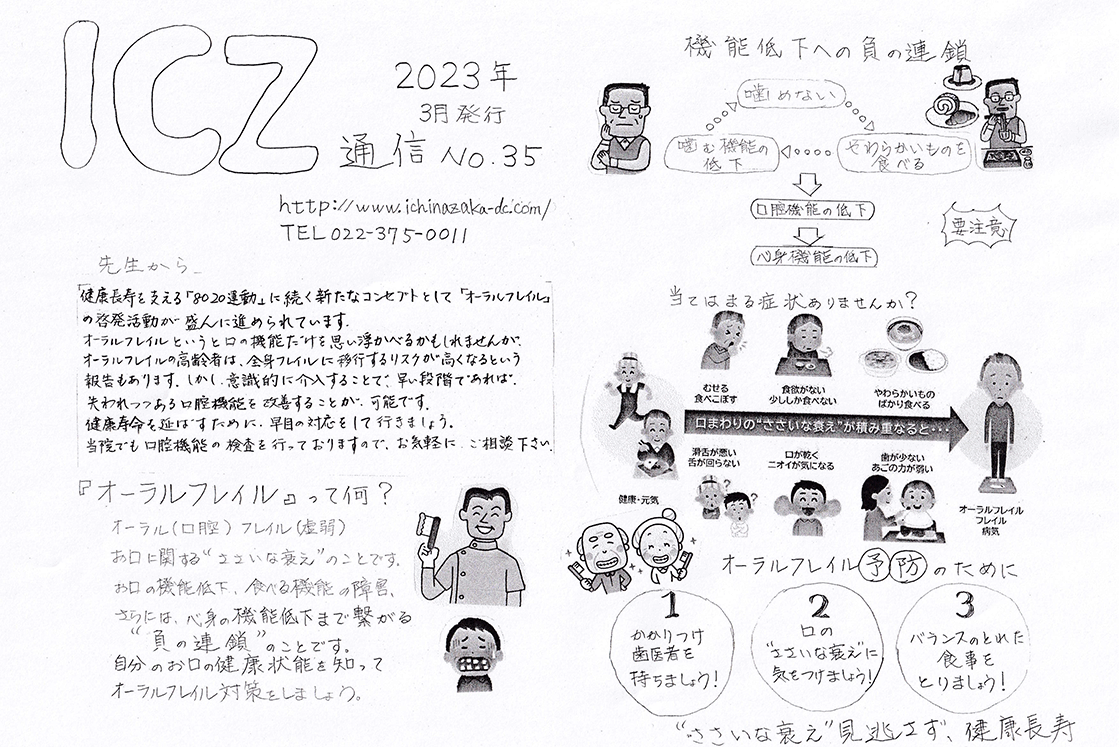 ICZ
2023年
3月発行
通信 No.35
http://www.ichinazaka-dc.com/
TEL 022-375-0011
先生から
健康長寿を支える「8020運動」に続く新たなコンセプトとして「オーラルフレイル」
の啓発活動が盛んに進められています。
オーラルフレイルというと口の機能だけを思い浮かべるかもしれませんが、
オーラルフレイルの高齢者は、全身フレイルに移行するリスクが高くなるという
報告もあります。しかし、意識的に介入することで、早い段階であれば、
失われつつある口腔機能を改善することが、可能です。
健康寿命を延ばすために、早目の対応をして行きましょう。
当院でも口腔機能の検査を行っておりますので、お気軽に、ご相談下さい。
『オーラルフレイル』って何？
オーラル(口腔) フレイル(虚弱)
お口に関する“ささいな衰え”のことです。
お口の機能低下、食べる機能の障害、
さらには、心身の機能低下まで繋がる
“負の連鎖”のことです。
自分のお口の健康状態を知って
オーラルフレイル対策をしましょう。
機能低下への負の連鎖
噛めない
噛む機能の
低下
やわらかいものを
食べる
口腔機能の低下
要注意
心身機能の低下
当てはまる症状ありませんか？
むせる
食べこぼす
食欲がない
少ししか食べない
やわらかいもの
ばかり食べる
口まわりの“ささいな衰え”が積み重なると・・・
滑舌が悪い
舌が回らない
口が乾く
ニオイが気になる
歯が少ない
あごの力が弱い
健康・元気
オーラルフレイル
フレイル
病気
オーラルフレイル予防のために
1
かかりつけ
歯医者を
持ちましょう!
2
口の
“ささいな衰え”に
気をつけましょう!
3
バランスのとれた
食事を
とりましょう!
“ささいな衰え”見逃さず、健康長寿